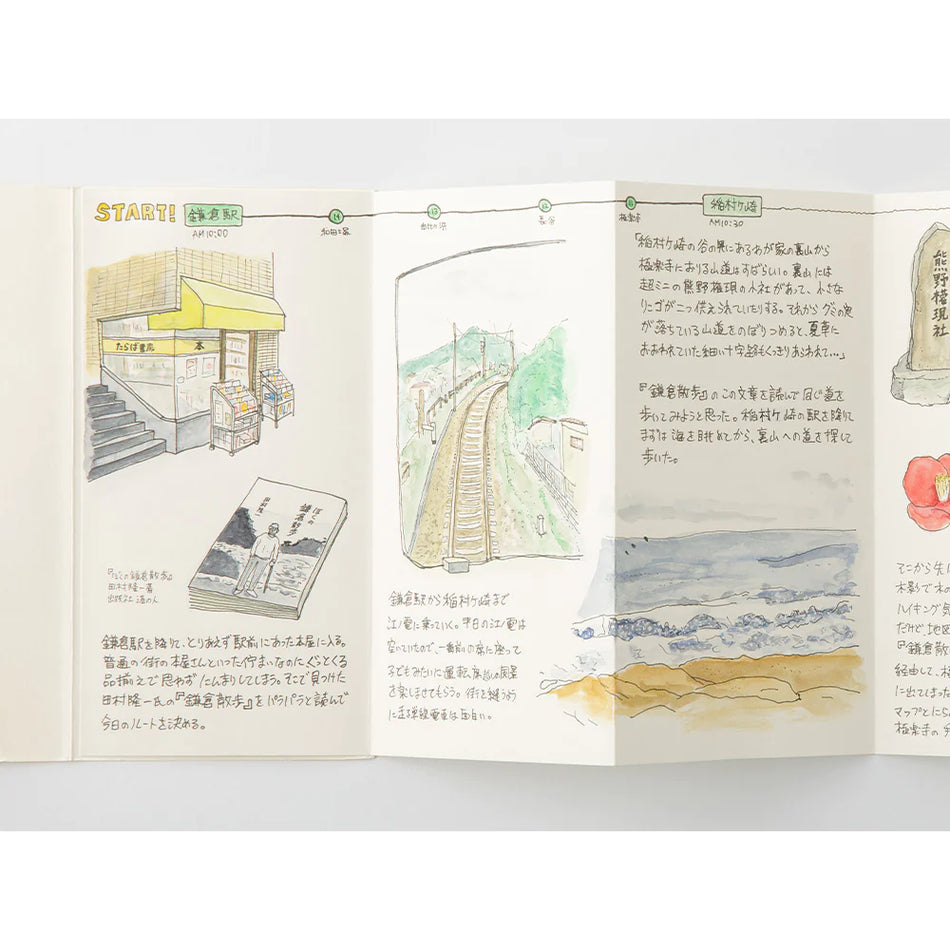 START!
鎌倉駅
AM10:00
14
和田塚
13
由比ヶ浜
12
長谷
11
極楽寺
稲村ヶ崎
AM10:30
たらば書房
本
ぼくの
鎌倉散歩
田村隆一
『ぼくの鎌倉散歩』
田村隆一著
出版社 港の人
鎌倉駅を降りて、とりあえず駅前にあった本屋に入る。
普通の街の本屋さんといった佇まいなのにぐっとくる
品揃えで思わずたんまりしてしまう。そこで見つけた
田村隆一氏の『鎌倉散歩』をパラパラと読んで
今日のルートを決める。
鎌倉駅から稲村ヶ崎まで
江ノ電に乗っていく。平日の江ノ電は
空いていたので、一番前の席に座って
子どもみたいに運転席からの風景
を楽しませてもらう。街を縫うように
に走る単線電車は面白い。
「稲村ヶ崎の谷の奥にあるわが家の裏山から
極楽寺におりる山道はすばらしい。裏山には
超ミニの熊野権現の小社があって、小さな
リンゴが二つ供えられていたりする。それからグミの実
が落ちている山道をのぼりつめると、夏草に
おおわれていた細い十字路もくっきりあらわれて…」
『鎌倉散歩』のこの文章を読んで同じ道を
歩いてみようと思った。稲村ヶ崎の駅を降りて
まずは海を眺めてから、裏山への道を探して
歩いた。
熊野権現社
そこから先は
木影で木の
ハイキング気
だけど、地図
『鎌倉散
経由して、極
に出てまった
マップとにら
極楽寺の